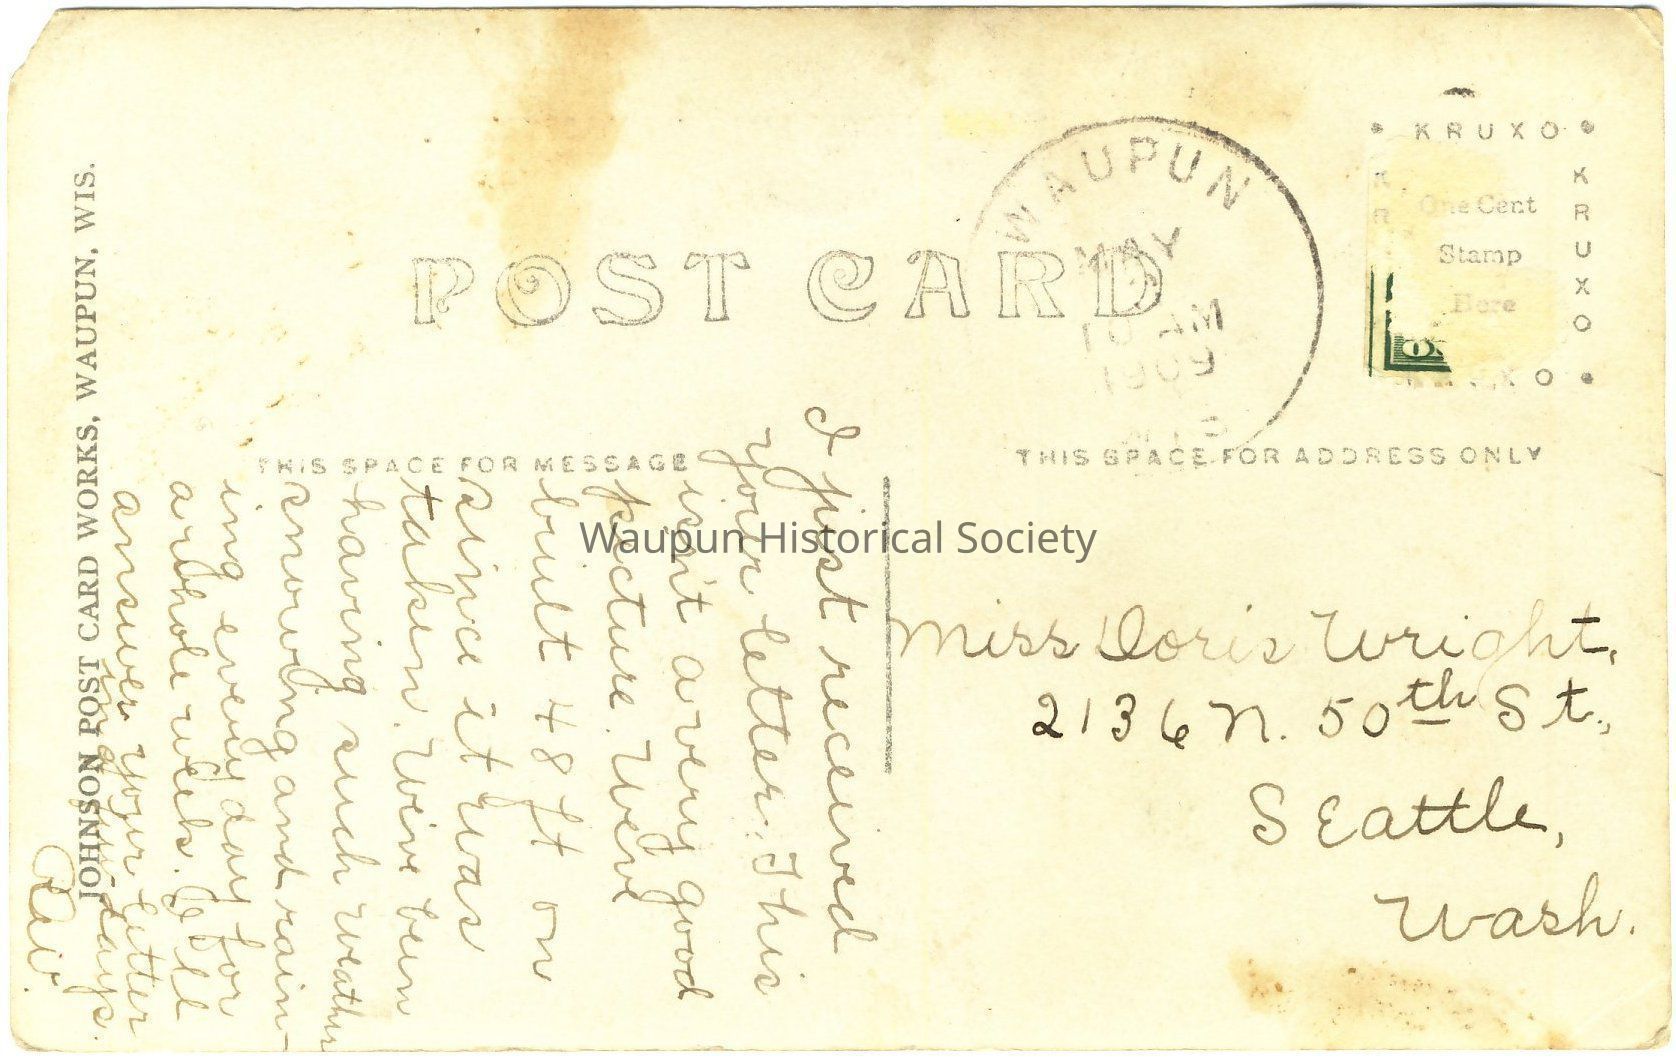 POST CARD
WAUPUN
MAY
10 AM
1909
WIS
KRUXO
KRUXO
One Cent
Stamp
Here
THIS SPACE FOR MESSAGE
THIS SPACE FOR ADDRESS ONLY
JOHNSON POST CARD WORKS, WAUPUN, WIS.
I just received
your letter. This
isn't a very good
picture. We've
built 48 ft on
since it was
taken. We've been
having such weather
snowing and rain-
ing every day for
a whole week. I'll
answer your letter
in a few days.
Miss Doris Wright,
2136 N. 50th St.,
Seattle,
Wash.
Waupun Historical Society